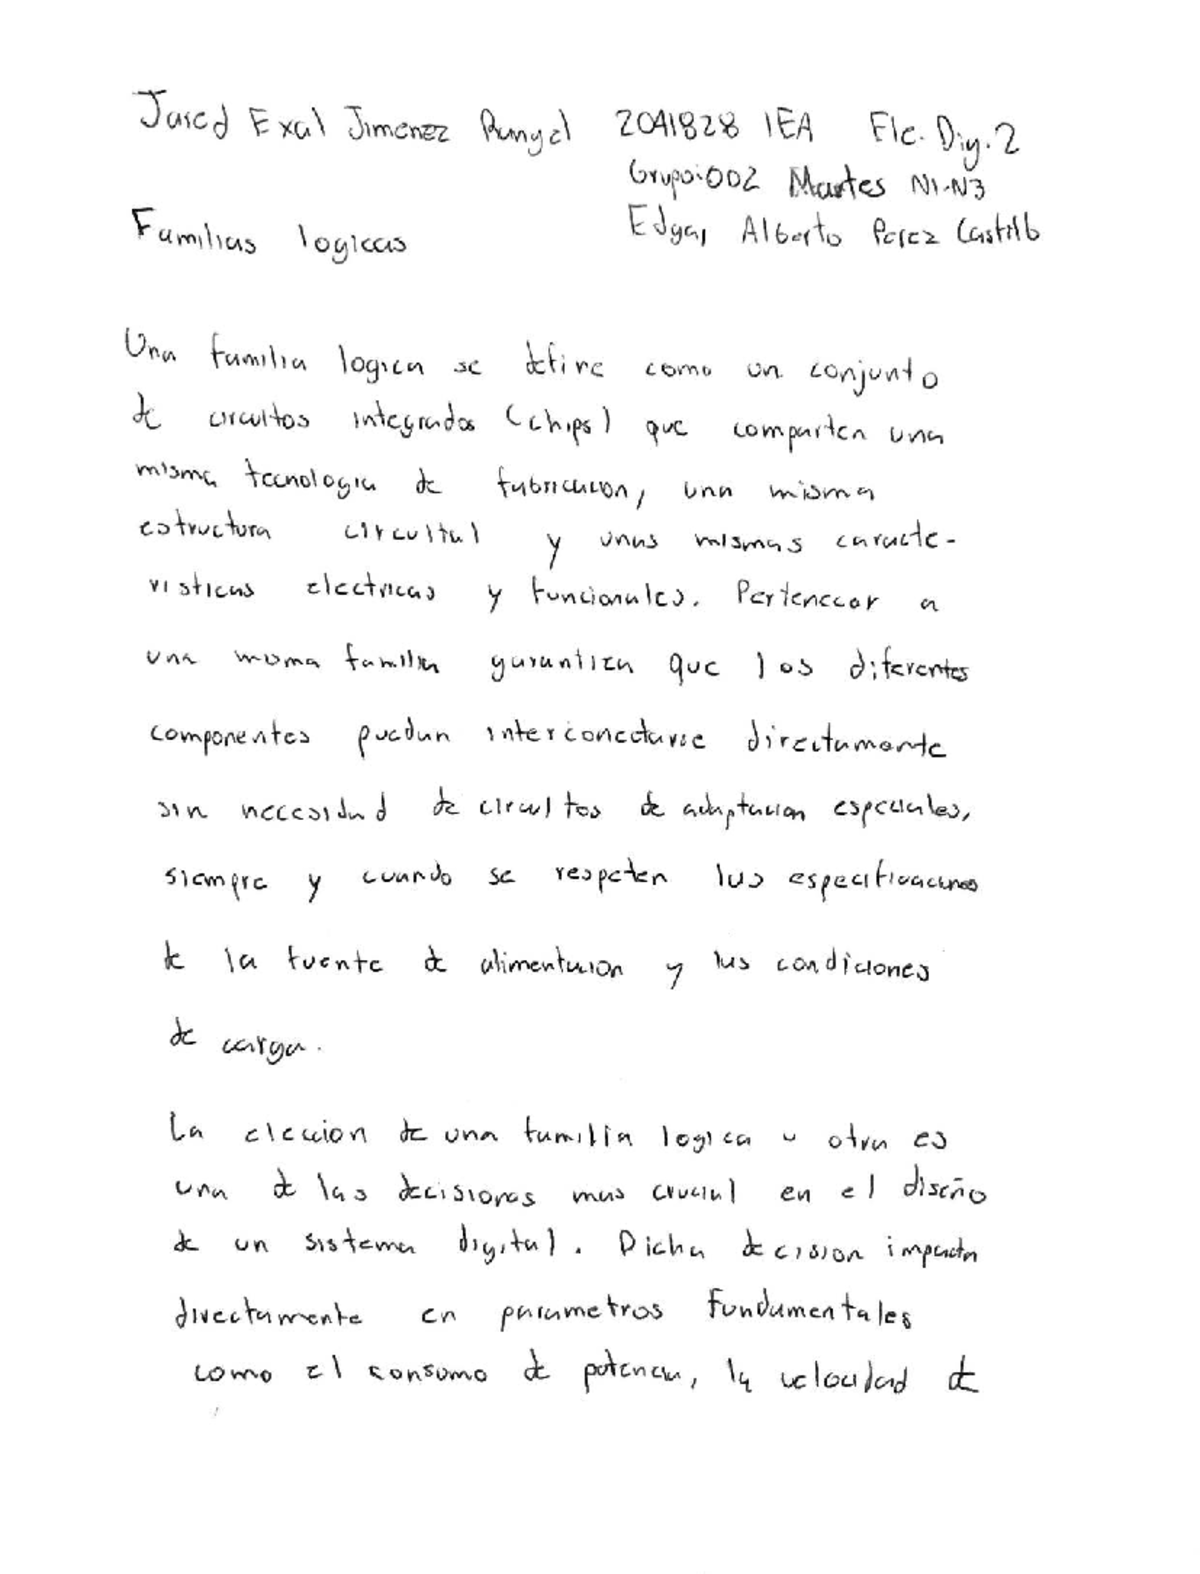 Jared Exal Jimenez Rangel 2041828 IEA Ele. Dig. 2
Grupo:002 Martes N1-N3
Edgar Alberto Perez Castillo
Familias logicas
Una familia logica se define como un conjunto
de circuitos integrados (chips) que comparten una
misma tecnologia de fabricacion, una misma
estructura circuital y unas mismas caracte-
risticas electricas y funcionales. Pertenecer a
una misma familia garantiza que los diferentes
componentes puedan interconectarse directamente
sin necesidad de circuitos de adaptacion especiales,
siempre y cuando se respeten las especificaciones
de la fuente de alimentacion y las condiciones
de carga.
La eleccion de una familia logica u otra es
una de las decisiones mas crucial en el diseño
de un sistema digital. Dicha decision impacta
directamente en parametros fundamentales
como el consumo de potencia, la velocidad de